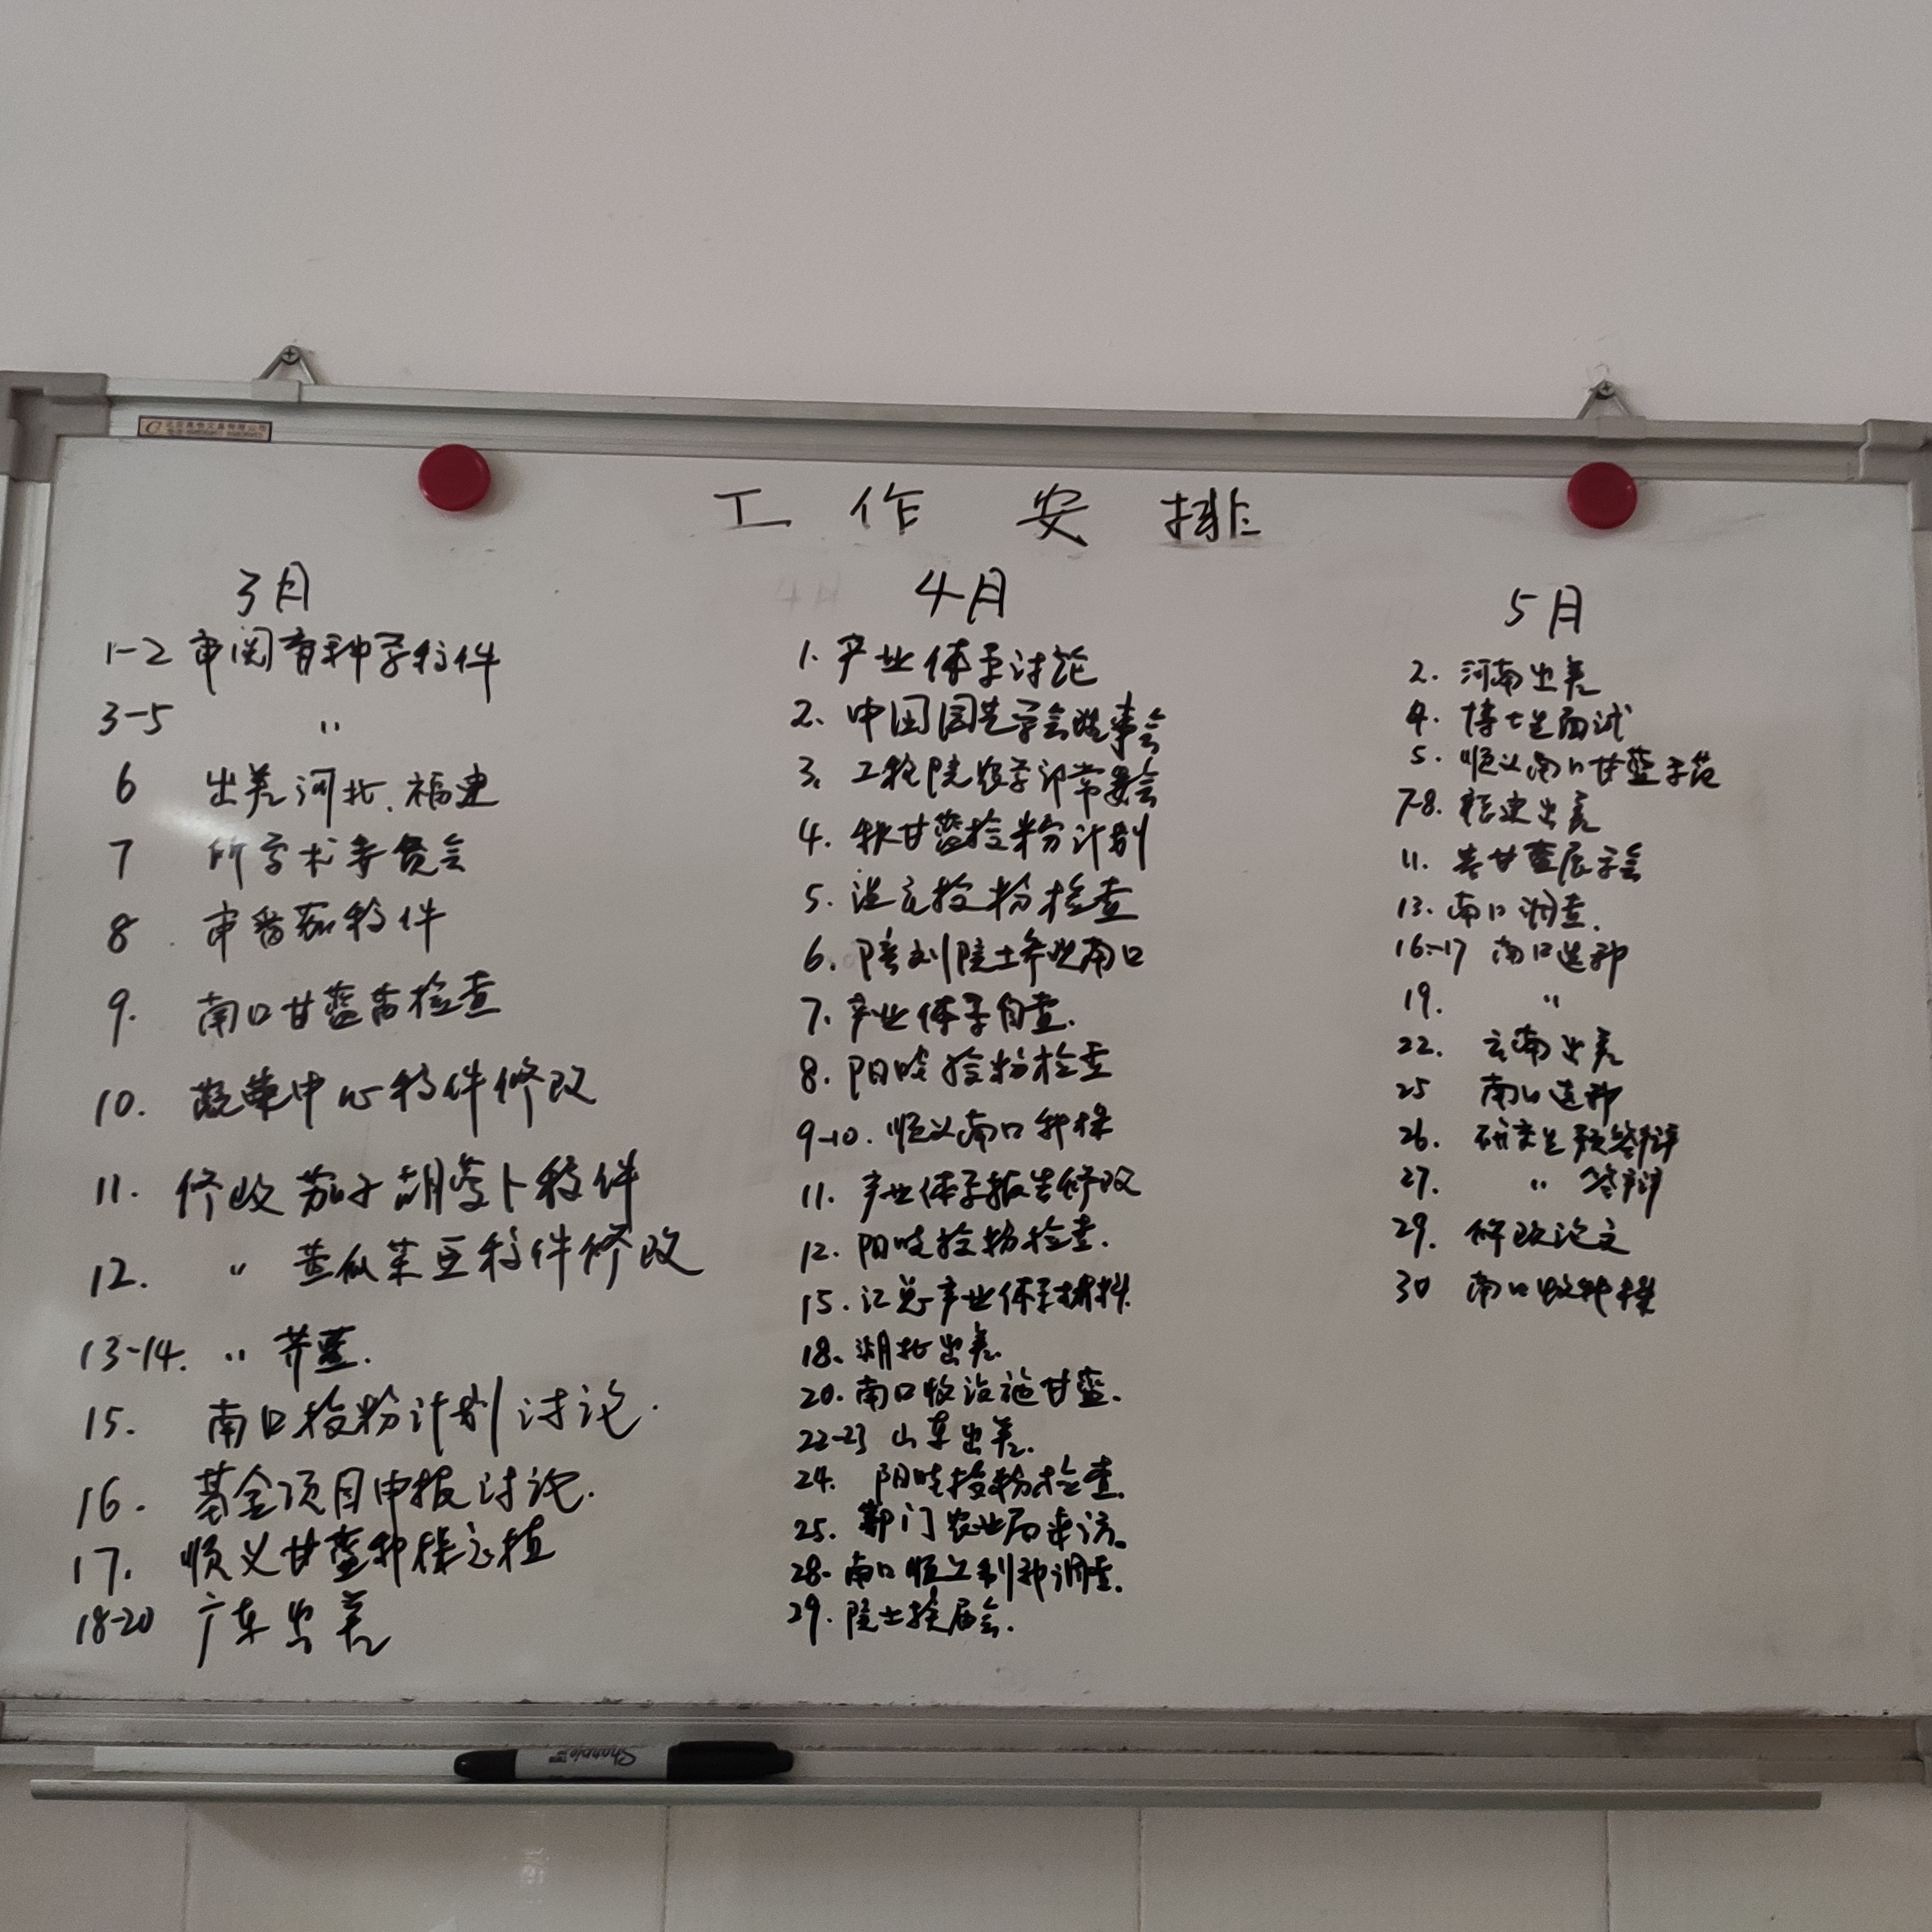 工作安排
3月
1-2 审阅育种学稿件
3-5 〃
6 出差河北、福建
7 所学术委员会
8 审番茄稿件
9. 南口甘蓝苗检查
10. 蔬菜中心稿件修改
11. 修改茄子胡萝卜稿件
12. 〃 黄瓜菜豆稿件修改
13-14. 〃 芥蓝.
15. 南口授粉计划讨论.
16. 基金项目申报讨论.
17. 顺义甘蓝种株定植
18-20 广东出差
4月
1. 产业体系讨论
2. 中国园艺学会理事会
3. 工程院农学部常委会
4. 秋甘蓝授粉计划
5. 授粉检查
6. 陪刘院士参观南口
7. 产业体系自查.
8. 阳畦授粉检查
9-10. 顺义南口种株
11. 产业体系报告修改
12. 阳畦授粉检查.
15. 汇总产业体系材料.
18. 湖北出差.
20. 南口收设施甘蓝.
22-23 山东出差.
24. 阳畦授粉检查.
25. 荆门农业局来访。
28. 南口顺义制种调查.
29. 院士换届会.
5月
2. 河南出差
4. 博士生面试
5. 顺义南口甘蓝示范
7-8. 福建出差
11. 春甘蓝展示会
13. 南口调查.
16-17 南口选种
19. 〃
22. 云南出差
25 南口选种
26. 研究生预答辩
27. 〃 答辩
29. 修改论文
30 南口收种株
Sharpie